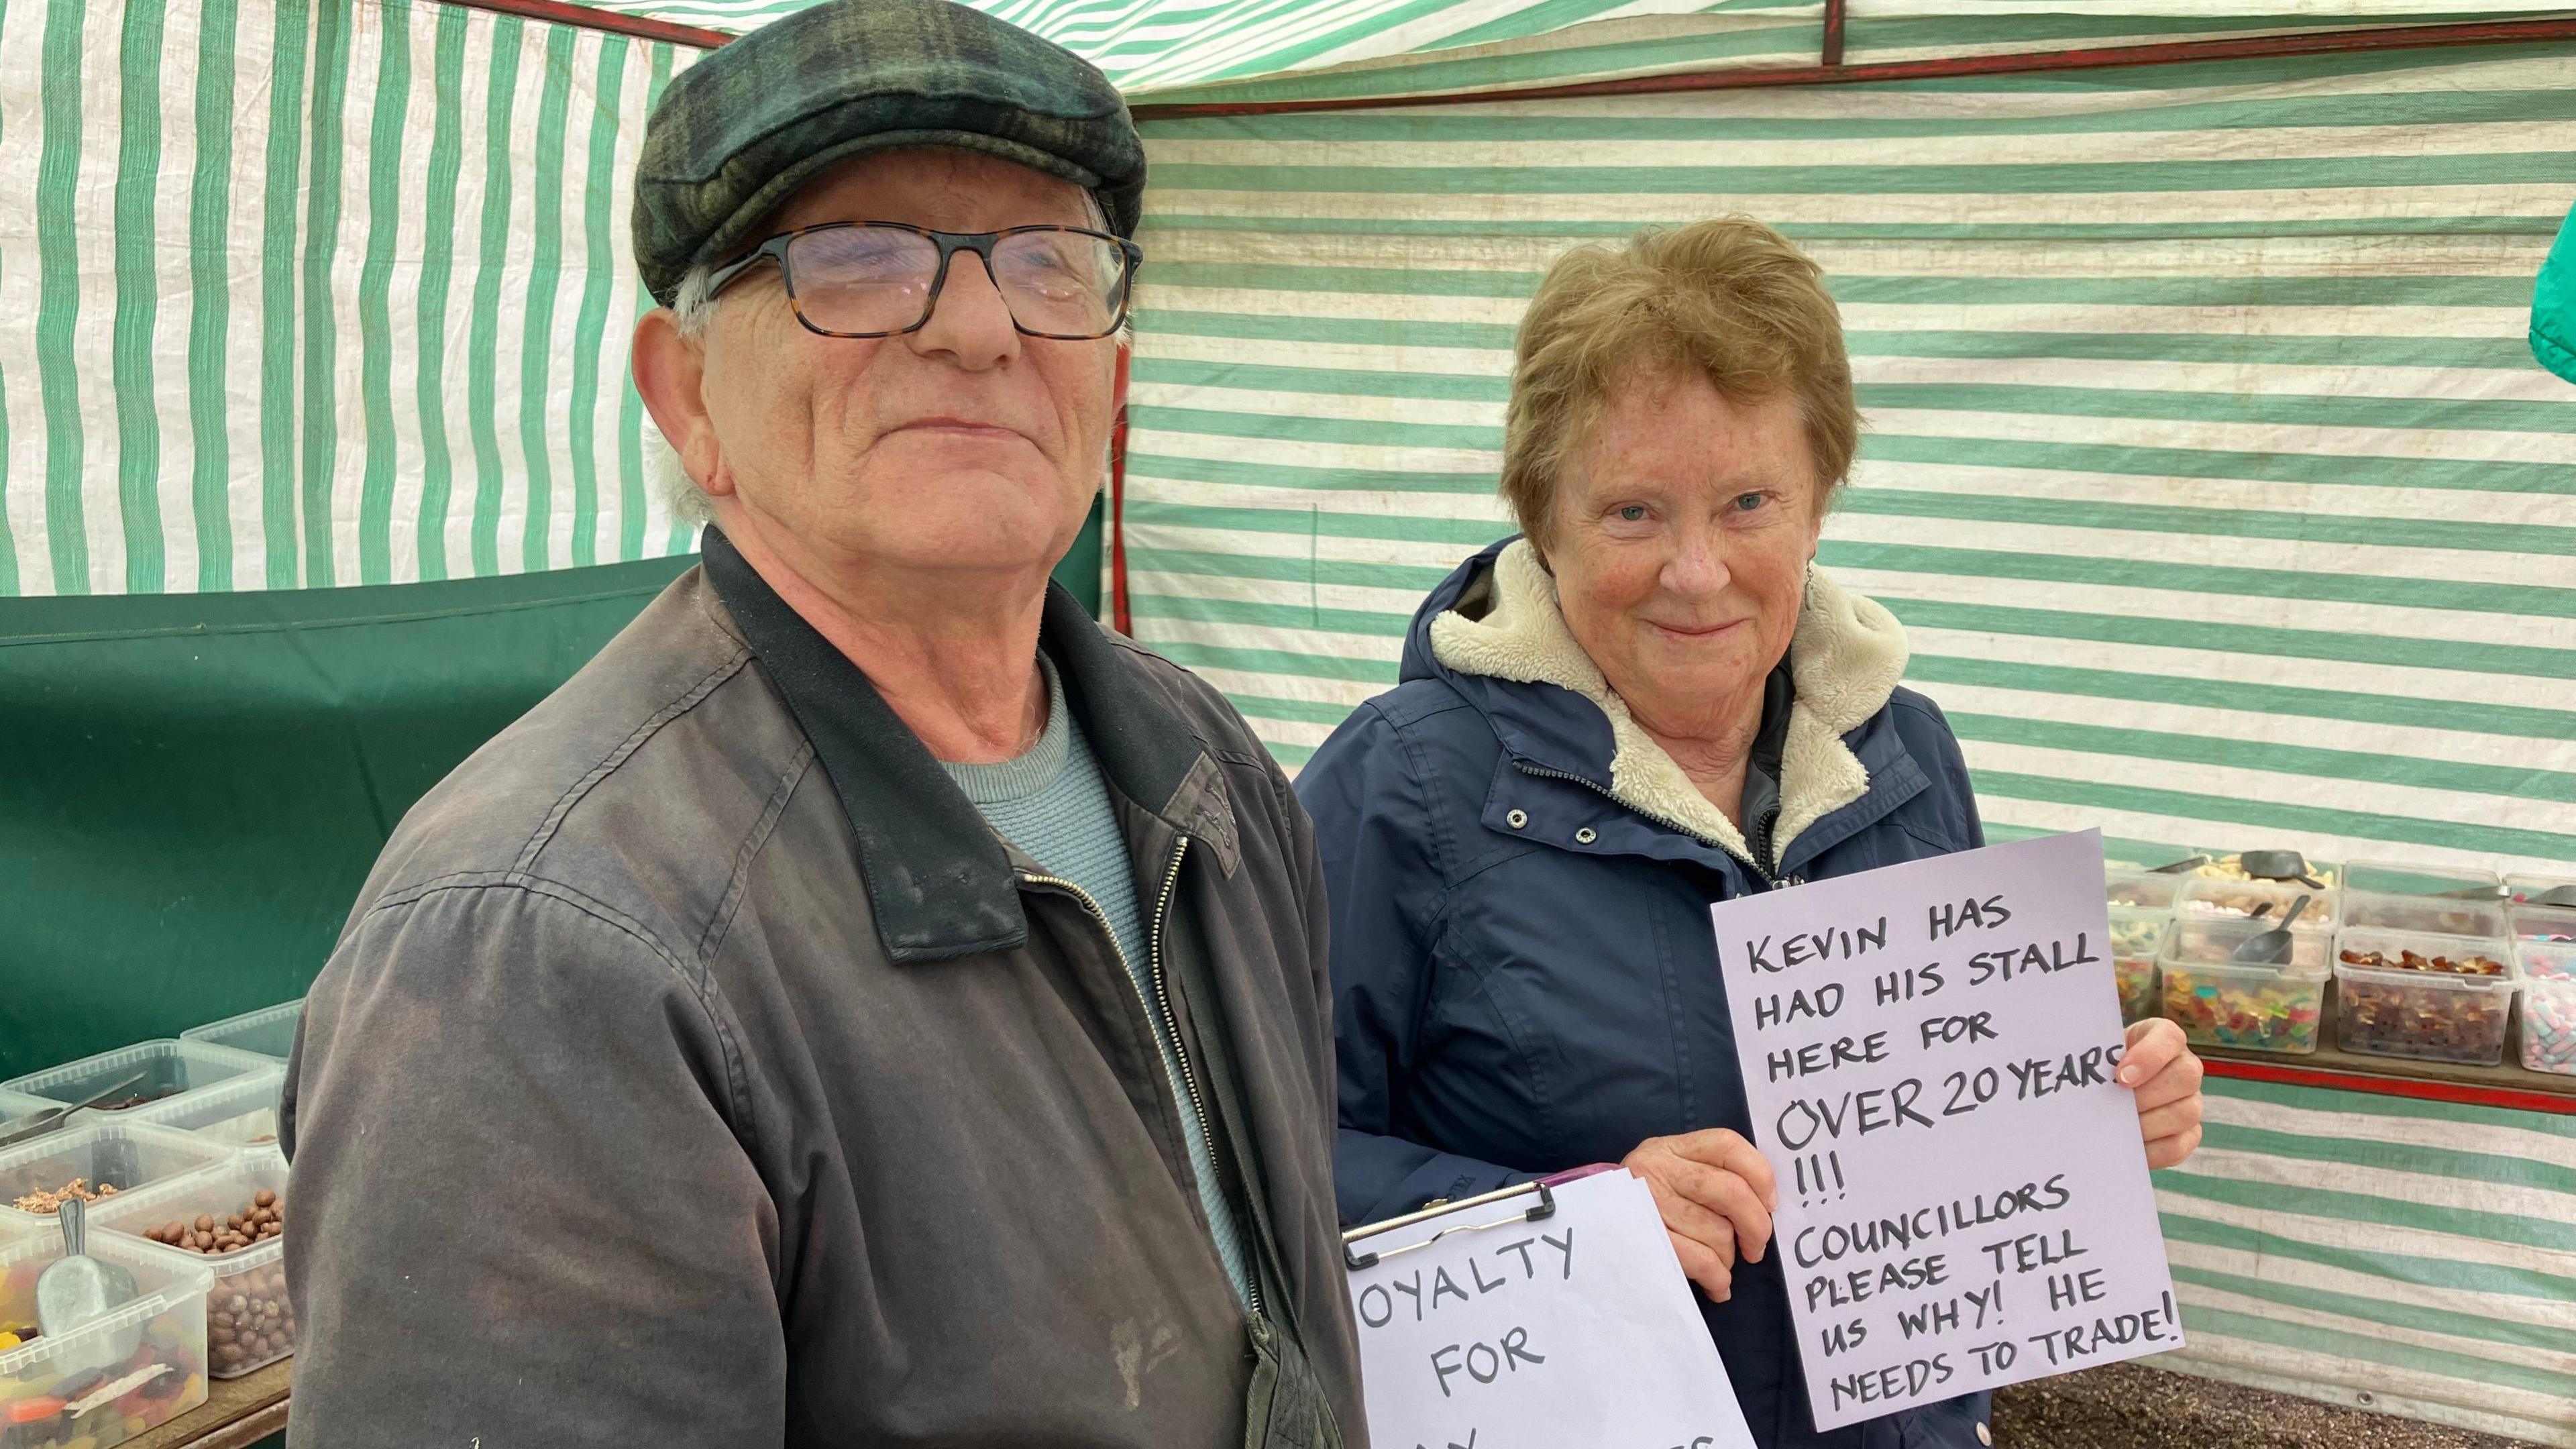 KEVIN HAS
HAD HIS STALL
HERE FOR
OVER 20 YEARS
!!!
COUNCILLORS
PLEASE TELL
US WHY! HE
NEEDS TO TRADE!
OYALTY
FOR